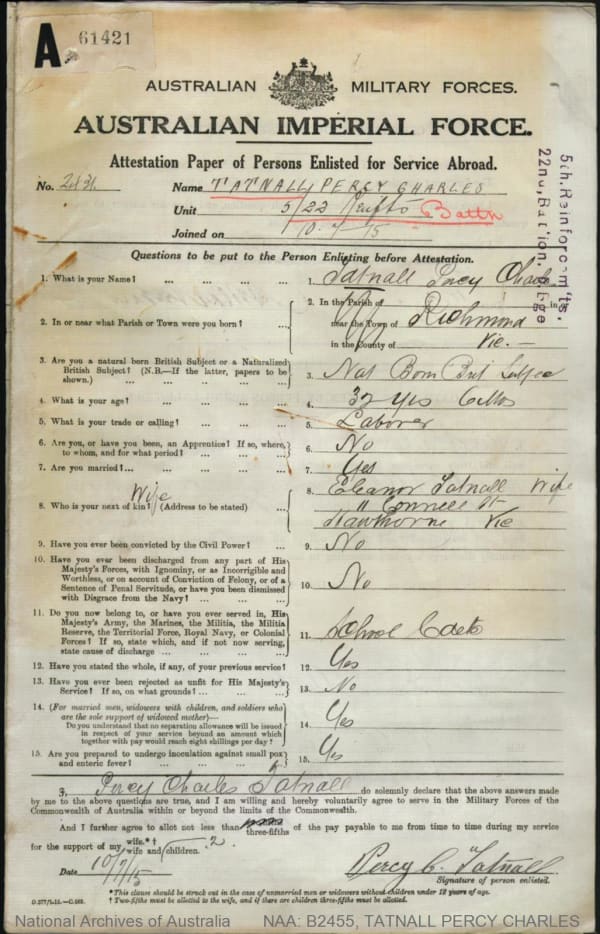 A. 61421
AUSTRALIAN MILITARY FORCES.
AUSTRALIAN IMPERIAL FORCE.
Attestation Paper of Persons Enlisted for Service Abroad.
No. 2431 Name TATNALL PERCY CHARLES
Unit 5/22 Reinfts Battn
Joined on 10.7.15
5th. Reinforcemfts.
22nd. Battion.
Questions to be put to the Person Enlisting before Attestation.
1. What is your Name? ... ... ... ... 1. Tatnall Percy Charles
2. In or near what Parish or Town were you born? ... 2. In the Parish of in or
near the Town of Richmond
in the County of Vic.—
3. Are you a natural born British Subject or a Naturalized
British Subject? (N.B.—If the latter, papers to be
shown.) ... ... ... ... 3. Nat Born Brit Subject
4. What is your age? ... ... ... ... 4. 32 yrs 6 Mos
5. What is your trade or calling? ... ... ... 5. Laborer
6. Are you, or have you been, an Apprentice? If so, where,
to whom, and for what period? ... ... ... 6. No
7. Are you married?... ... ... ... ... 7. Yes
8. Who is your next of kin? (Address to be stated) ... Wife 8. Eleanor Tatnall Wife
11 Connell St
Hawthorne Vic
9. Have you ever been convicted by the Civil Power? ... 9. No
10. Have you ever been discharged from any part of His
Majesty's Forces, with Ignominy, or as Incorrigible and
Worthless, or on account of Conviction of Felony, or of a
Sentence of Penal Servitude, or have you been dismissed
with Disgrace from the Navy? ... ... ... 10. No
11. Do you now belong to, or have you ever served in, His
Majesty's Army, the Marines, the Militia, the Militia
Reserve, the Territorial Force, Royal Navy, or Colonial
Forces? If so, state which, and if not now serving,
state cause of discharge ... ... ... ... 11. School Cadets
12. Have you stated the whole, if any, of your previous service? 12. Yes
13. Have you ever been rejected as unfit for His Majesty's
Service? If so, on what grounds? ... ... ... 13. No
14. (For married men, widowers with children, and soldiers who
are the sole support of widowed mother)—
Do you understand that no separation allowance will be issued
in respect of your service beyond an amount which
together with pay would reach eight shillings per day? ... 14. Yes
15. Are you prepared to undergo inoculation against small pox
and enteric fever? ... ... ... ... 15. Yes
I, Percy Charles Tatnall do solemnly declare that the above answers made
by me to the above questions are true, and I am willing and hereby voluntarily agree to serve in the Military Forces of the
Commonwealth of Australia within or beyond the limits of the Commonwealth.
And I further agree to allot not less than three-fifths of the pay payable to me from time to time during my service
for the support of my wife.*†
wife and children. 2.
Date 10/7/15 Percy C. Tatnall
Signature of person enlisted.
*This clause should be struck out in the case of unmarried men or widowers without children under 18 years of age.
† Two-fifths must be allotted to the wife, and if there are children three-fifths must be allotted.
National Archives of Australia NAA: B2455, TATNALL PERCY CHARLES